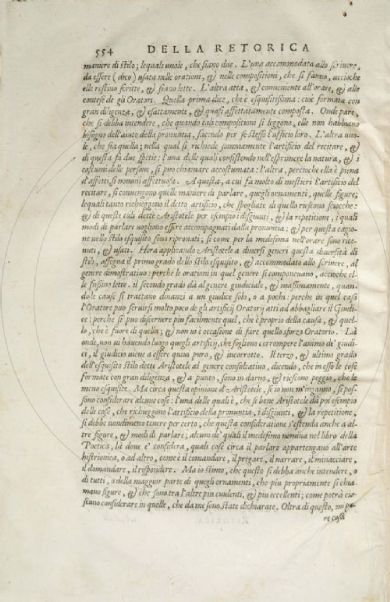 554 DELLA RETORICA
maniere di stilo; lequale uuole, che siano due. L'una accommodata allo scriuere,
da essere (dico) usata nelle orationi, & nelle compositioni, che si fanno, accioche
elle restino scritte, & siano lette. L'altra atta, & conueniente all'orare, & alle
contese de gli Oratori. Quella prima dice, che è esquisitissima: cioè formata con
gran diligenza, & esattamente, & quasi affettatamente composta. Onde pare,
che si debba intendere, che quando cotali compositioni si leggono, elle non habbiano
bisogno dell'aiuto della pronuntia, facendo per se stesse l'ufficio loro. L'altra uuole,
che sia quella; nella qual si richiede sommamente l'artificio del recitare, &
di questa fa due spetie: l'una delle quali consistendo nell'esprimere la natura, & i
costumi delle persone, si può chiamare accostumata: l'altra, percioche ella è piena
d'affetti si nomina affettuosa. A questa, a cui fa molto di mestieri l'artificio del
recitare, si conuengono quelle maniere di parlare, quegli ornamenti, quelle figure,
lequali tanto richieggono il detto artificio, che spogliate di quello restano sciocche:
& di questi tali dette Aristotele per essempio i disgiunti, & la repetitione, i quali
modi di parlare uogliono essere accompagnati dalla pronuntia: & per questa cagione
nello stilo esquisito sono riprouati, si come per la medesima nell'orare sono riceuuti,
& usati. Hora applicando Aristotele a diuersi generi questa diuersità di
stili, assegna il primo grado dello stilo esquisito, & accommodato allo scriuere, al
genere dimostratiuo: perche le orationi in quel genere si componeuano, accioche elle
fussino lette. il secondo grado dà al genere giudiciale, & massimamente, quando
le cause si trattano dinanzi a un giudice solo, o a pochi: perche in quel caso
l'Oratore può seruirsi molto poco de gli artifici Oratorij atti ad abbagliare il Giudice:
perche si può discernere più facilmente quel, che è proprio della causa, & quello,
che è fuore di quella; & non ui è occasione di fare quello sforzo Oratorio. Là
onde non ui hauendo luogo quegli artifici, che sogliono corrompere l'animo de' giudici,
il giudicio uiene a essere quasi puro, & incorrotto. Il terzo, & ultimo grado
dell'esquisito stilo dette Aristotele al genere consultatiuo, dicendo, che in esso le cose
formate con gran diligenza, & a punto, sono in darno, & riescono peggio, che le
meno esquisite. Ma circa questa opinione d'Aristotele, se io non m'inganno, si possono
considerare alcune cose: l'una delle quali è, che se bene Aristotele dà per essempio
delle cose, che richieggono l'artificio della pronuntia, i disgiunti, & la repetitione,
si debbe nondimeno tenere per certo, che questa consideratione s'estenda anche a altre
figure, & modi di parlare; alcuni de' quali il medesimo nomina nel libro della
Poetica, là doue e' considera, quali cose circa il parlare appartengano all'arte
histrionica, o ad altro, come è il comandare, il pregare, il narrare, il minacciare,
il domandare, il rispondere. Ma io stimo, che questo si debba anche intendere, o
di tutti, o della maggior parte di quegli ornamenti, che più propriamente si chiamano
figure, & che sono tra l'altre più euidenti, & più eccellenti; come potrà ciascuno
considerare in quelle, che da me sono state dichiarate. Oltra di questo,